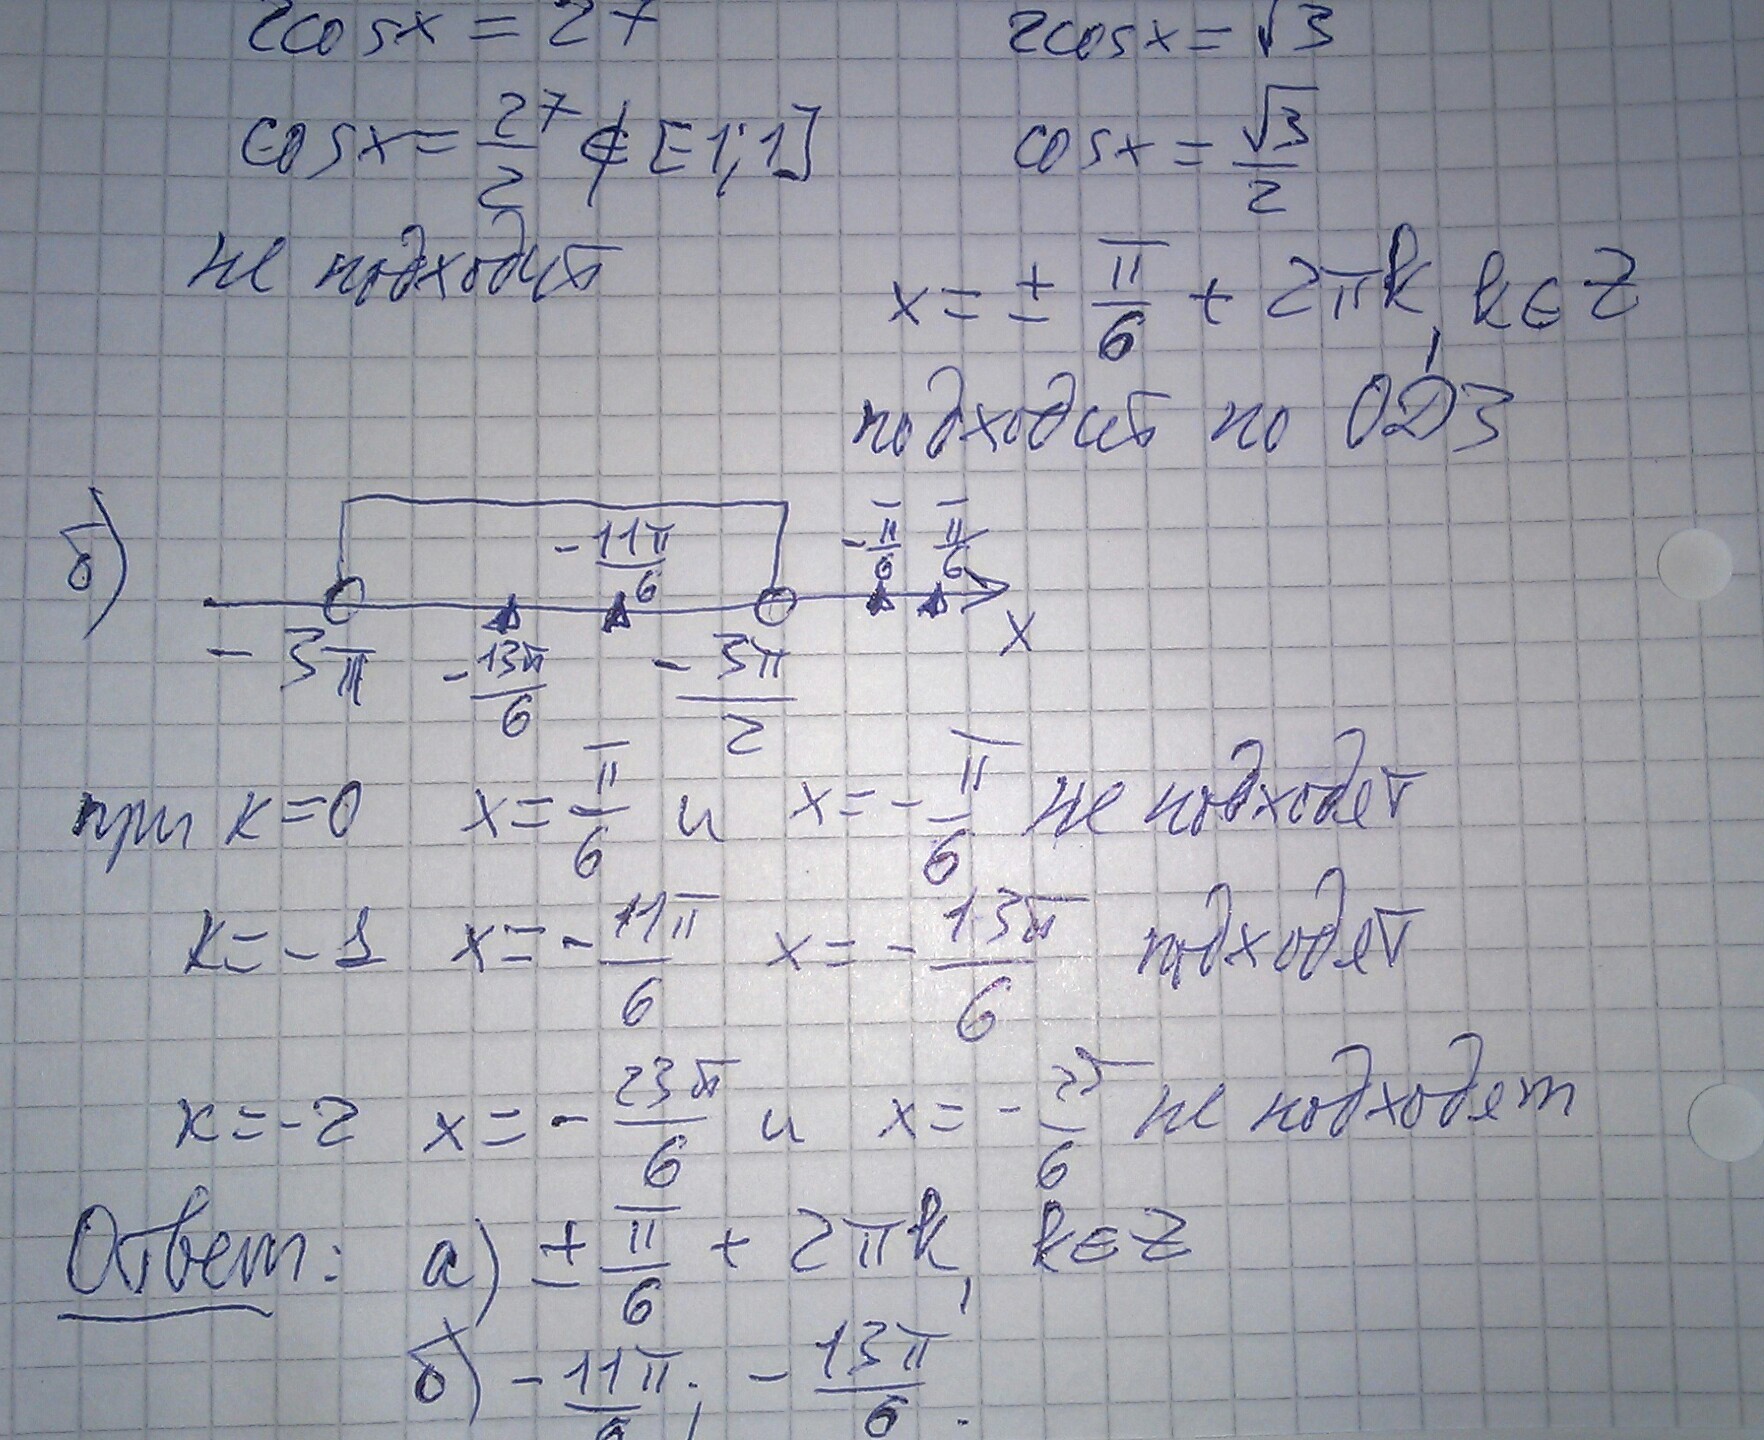 2cosx = 27 2cosx = √3
cosx = 27/2 ∉ [-1;1] cosx = √3/2
не подходит x = ± π/6 + 2πk, k∈Z
подходит по ОДЗ
б) -11π/6 -π/6 π/6
-3π -13π/6 -3π/2 x
при k=0 x = π/6 и x = -π/6 не подходят
k=-1 x = -11π/6 x = -13π/6 подходят
k=-2 x = -23π/6 и x = -25/6 не подходят
Ответ: а) ± π/6 + 2πk, k∈Z
б) -11π/6; -13π/6.